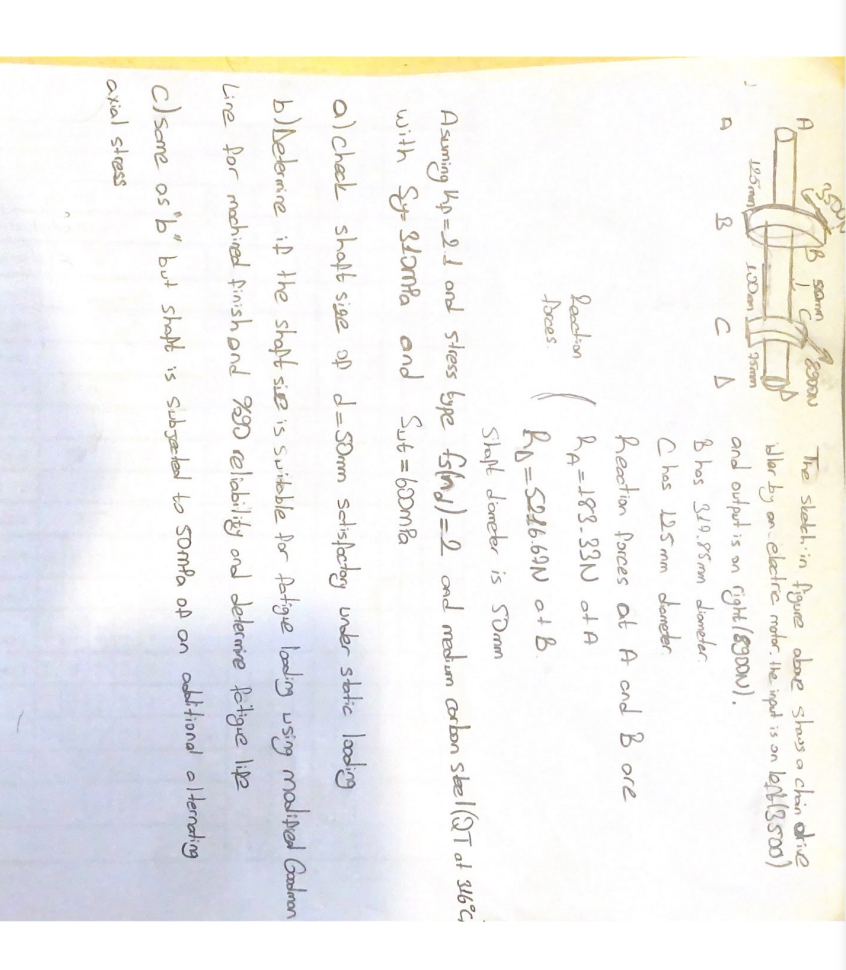 A
3500N
B
50mm
C
8900N
D
125mm
100mm
75mm
A B C D
The sketch in figure above shows a chain drive
idler by an electric motor. the input is on left(3500)
and output is on right(8900N).
B has 319.85mm diameter.
C has 125mm diameter.
Reaction forces at A and B are
Reaction
forces.
RA=183.33N at A
RD=5216.67N at B
Shaft diameter is 50mm
Asuming kf=2.1 and stress type fs(nd)=2 and medium carbon steel(QT at 316°C
with Sy=310mPa and Sut=600mPa
a) check shaft size of d=50mm satisfactory under static loading
b) Determine if the shaft size is suitable for fatigue loading using modified Goodman
Line for machined finish and %90 reliability and determine fatigue life
C) same as "b" but shaft is subjected to 50mPa of an additional alternating
axial stress